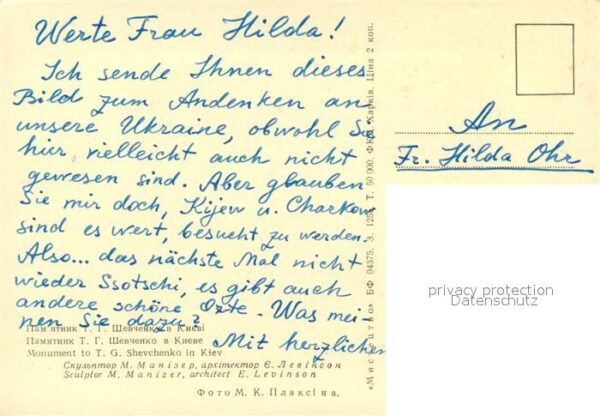 Werte Frau Hilda!
Ich sende Ihnen dieses
Bild zum Andenken an
unsere Ukraine, obwohl Sie
hier vielleicht auch nicht
gewesen sind. Aber glauben
Sie mir doch, Kijew u. Charkow
sind es wert, besucht zu werden.
Also... das nächste Mal nicht
wieder Ssotschi, es gibt auch
andere schöne Orte. Was mei-
nen Sie dazu?
Mit herzlichen
Пам'ятник Т. Г. Шевченку в Києві
Памятник Т. Г. Шевченко в Киеве
Monument to T. G. Shevchenko in Kiev
Скульптор М. Манізер, архітектор Є. Левінсон
Sculptor M. Manizer, architect E. Levinson
Фото М. К. Плаксіна.
«Мистецтво» БФ 04375. З. 1255. Т. 50 000. ФКО Харків. Ціна 2 коп.
An
Fr. Hilda Ohr
privacy protection
Datenschutz